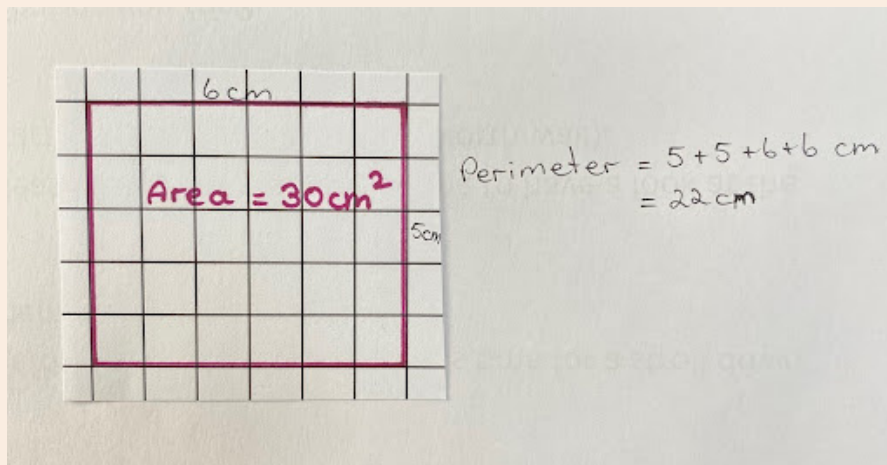 6cm
Area = 30cm²
5cm
Perimeter = 5+5+6+6 cm
= 22 cm